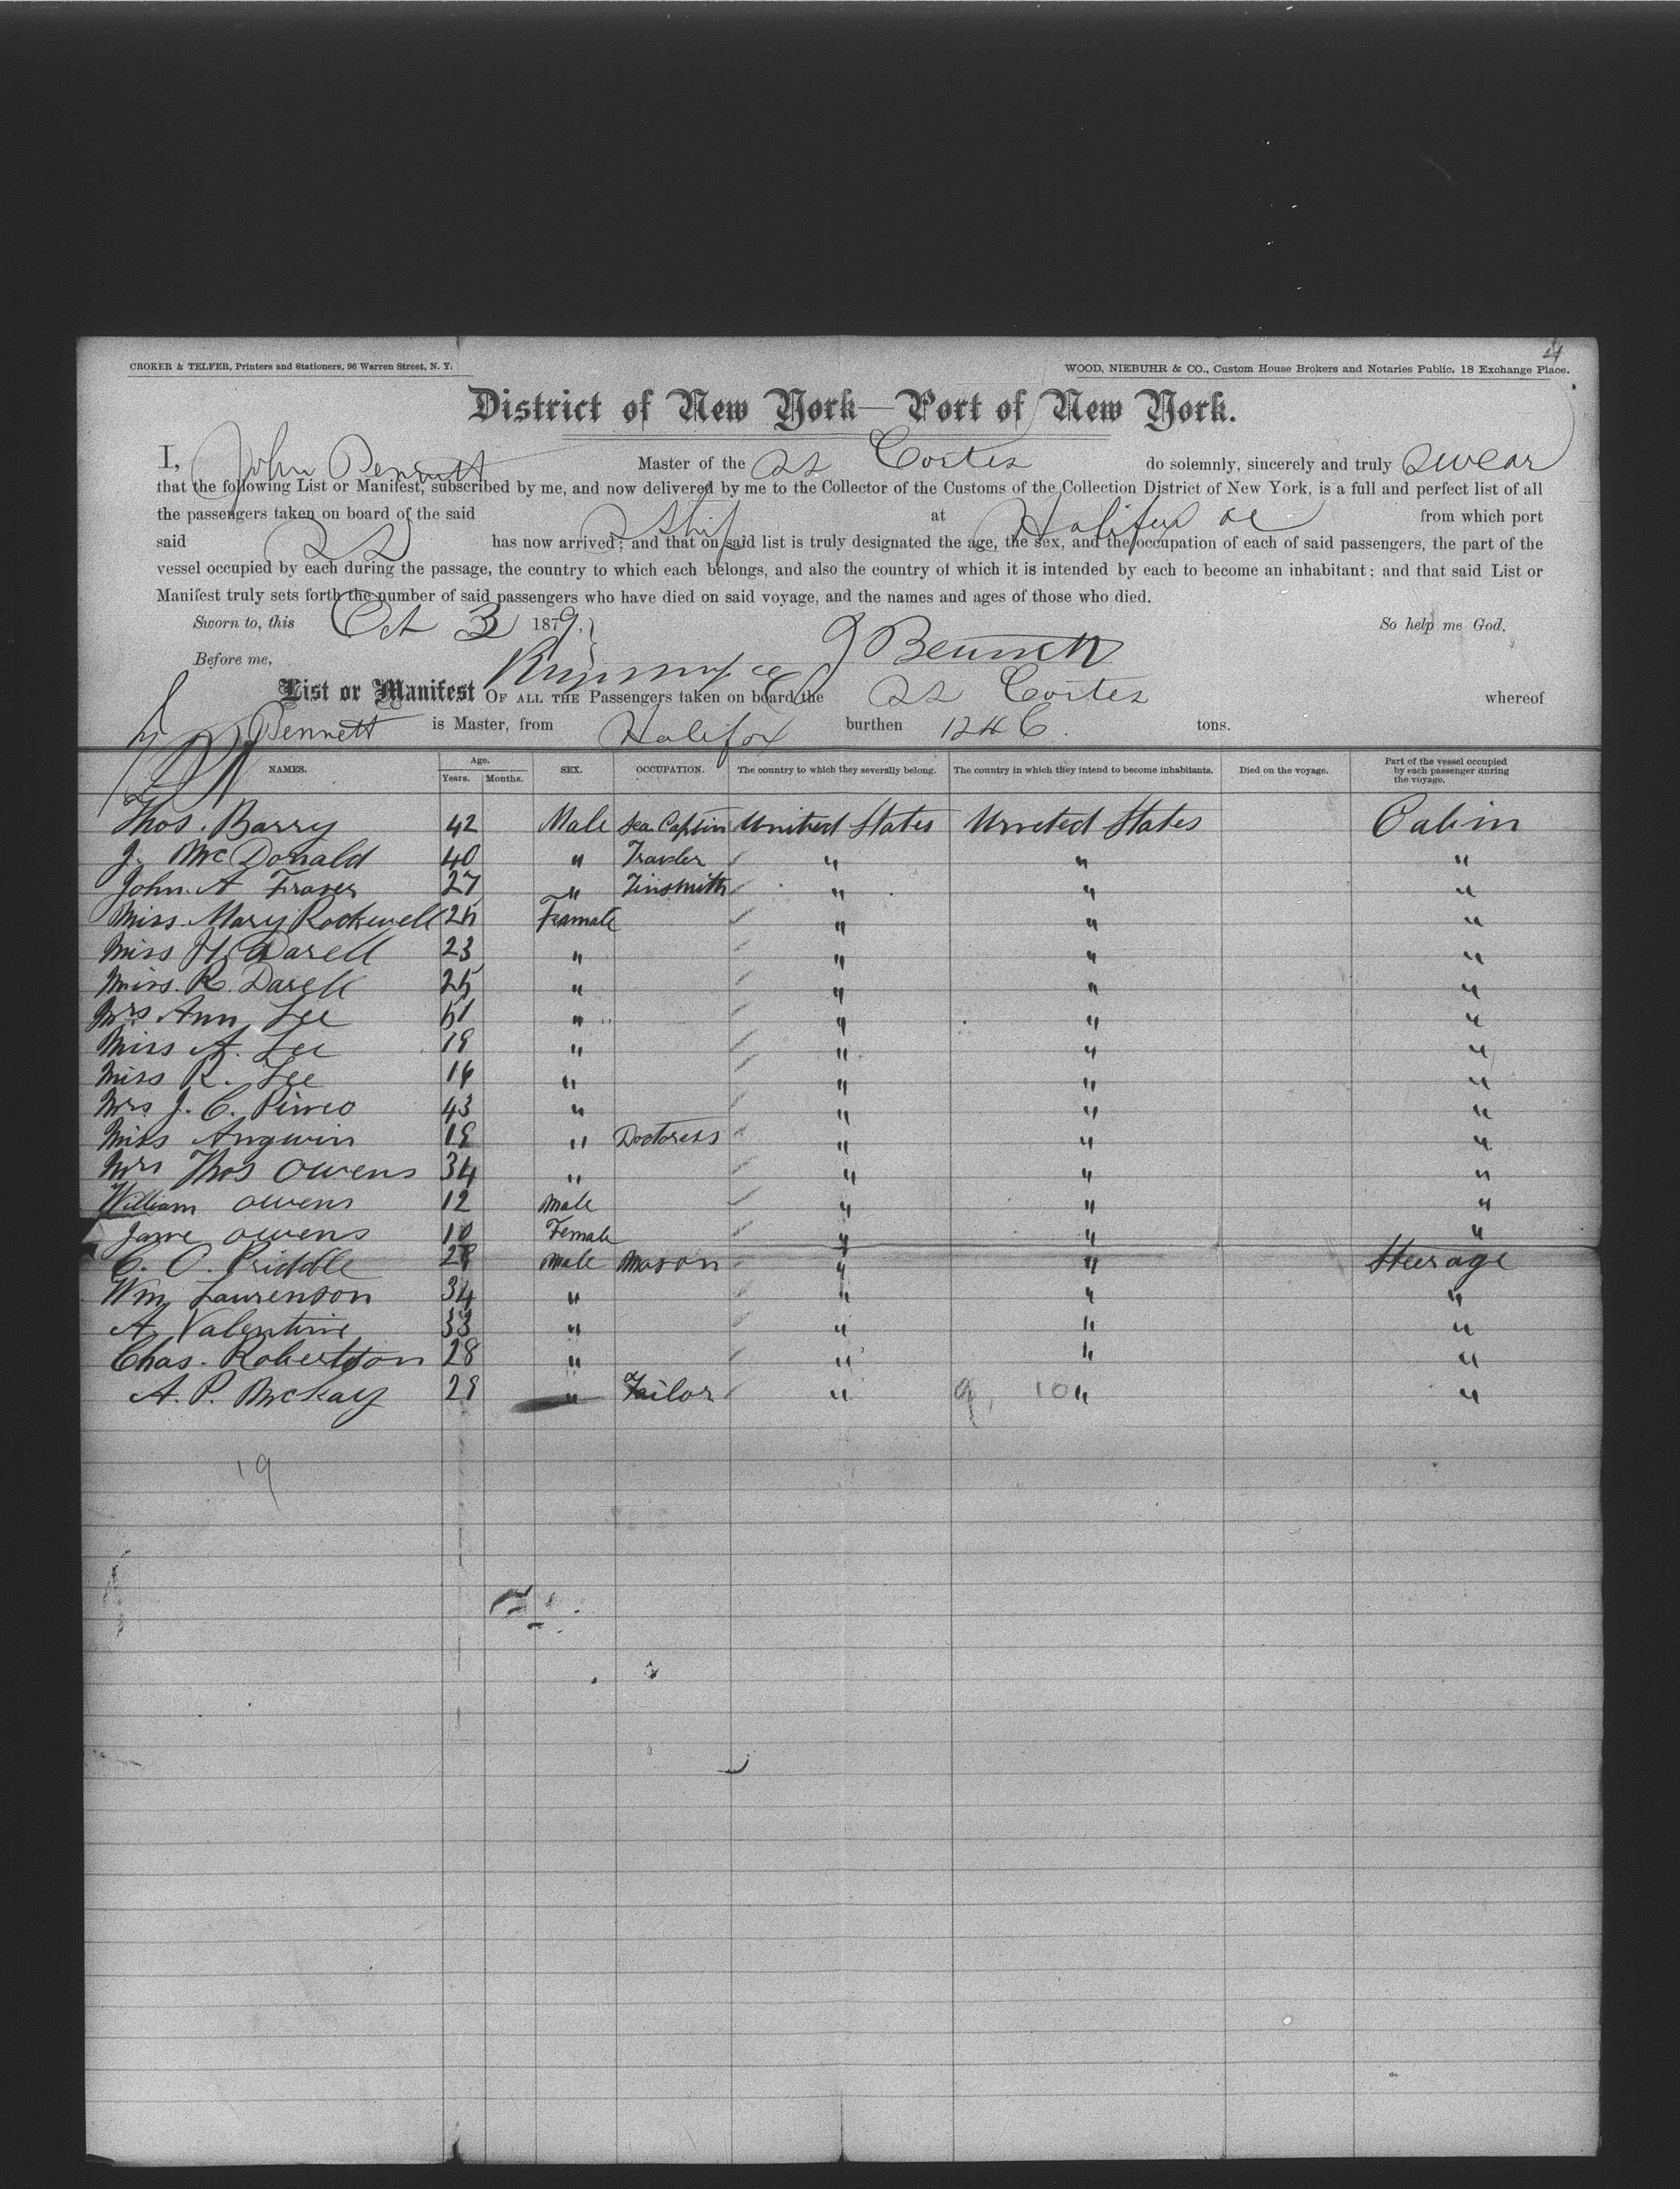 4
CROKER & TELFER, Printers and Stationers, 96 Warren Street, N. Y.
WOOD, NIEBUHR & CO., Custom House Brokers and Notaries Public, 18 Exchange Place.
District of New York—Port of New York.
I, John Bennett Master of the SS Cortes do solemnly, sincerely and truly swear
that the following List or Manifest, subscribed by me, and now delivered by me to the Collector of the Customs of the Collection District of New York, is a full and perfect list of all
the passengers taken on board of the said SShip at Halifax from which port
said SS has now arrived; and that on said list is truly designated the age, the sex, and the occupation of each of said passengers, the part of the
vessel occupied by each during the passage, the country to which each belongs, and also the country of which it is intended by each to become an inhabitant; and that said List or
Manifest truly sets forth the number of said passengers who have died on said voyage, and the names and ages of those who died.
Sworn to, this Oct 3 1879, So help me God,
Before me, J Bennett
List or Manifest OF ALL THE Passengers taken on board the SS Cortes whereof
Bennett is Master, from Halifax burthen 1246 tons.
NAMES. Age. Years. Months. SEX. OCCUPATION. The country to which they severally belong. The country in which they intend to become inhabitants. Died on the voyage. Part of the vessel occupied by each passenger during the voyage.
Thos. Barry 42 Male Sea Captin United States United States Cabin
J. McDonald 40 " Traveler " " "
John. A Fraser 27 " Tinsmith " " "
Miss. Mary Rockwell 25 Female " " "
Miss H. Darell 23 " " " "
Miss. R. Darell 25 " " " "
Mrs Ann Lee 51 " " " "
Miss A. Lee 18 " " " "
Miss R. Lee 16 " " " "
Mrs J. C. Pineo 43 " " " "
Miss Angwin 18 " Doctoress " " "
Mrs Thos Owens 34 " " " "
William Owens 12 Male " " "
Jane Owens 10 Female " " "
C. O. Priddle 28 Male Mason " " Steerage
Wm Laurenson 34 " " " "
A. Valentine 33 " " " "
Chas. Robertson 28 " " " "
A. P. McKay 28 " Tailor " 9, 10 " "
19